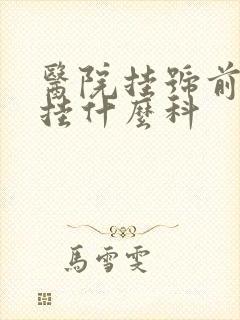 醫院挂號前
挂什麼科
馬雪雯